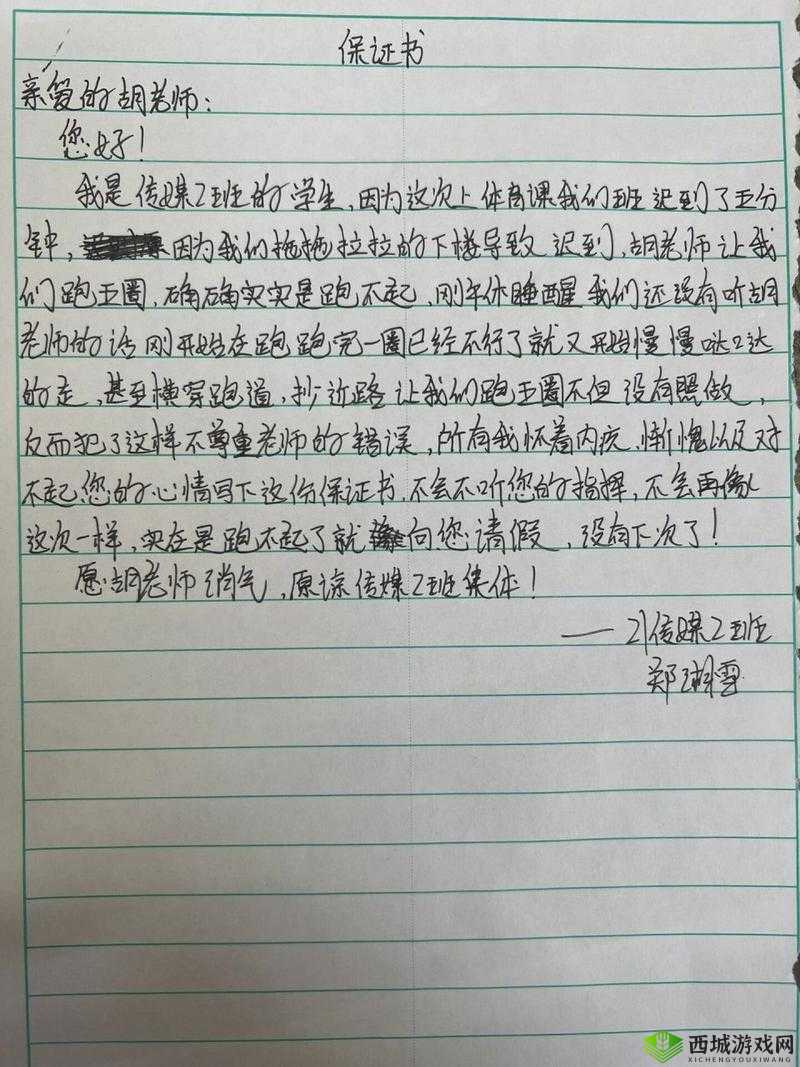 保证书
亲爱的胡老师：
您好！
我是传媒2班的学生，因为这次上体育课我们班迟到了五分
钟，因为我们拖拖拉拉的下楼导致迟到，胡老师让我
们跑五圈，确确实实是跑不起，刚午休睡醒我们还没有听胡
老师的话刚开始在跑跑完一圈已经不行了就又开始慢慢哒哒
的走，甚至横穿跑道，抄近路让我们跑五圈不但没有照做，
反而犯了这样不尊重老师的错误，所有我怀着内疚，惭愧以及对
不起您的心情写下这份保证书，不会不听您的指挥，不会再像
这次一样，实在是跑不起了就向您请假，没有下次了！
愿胡老师消气，原谅传媒2班集体！
——21传媒2班
郑湖雪
西城游戏网
XICHENGYOUXIWANG